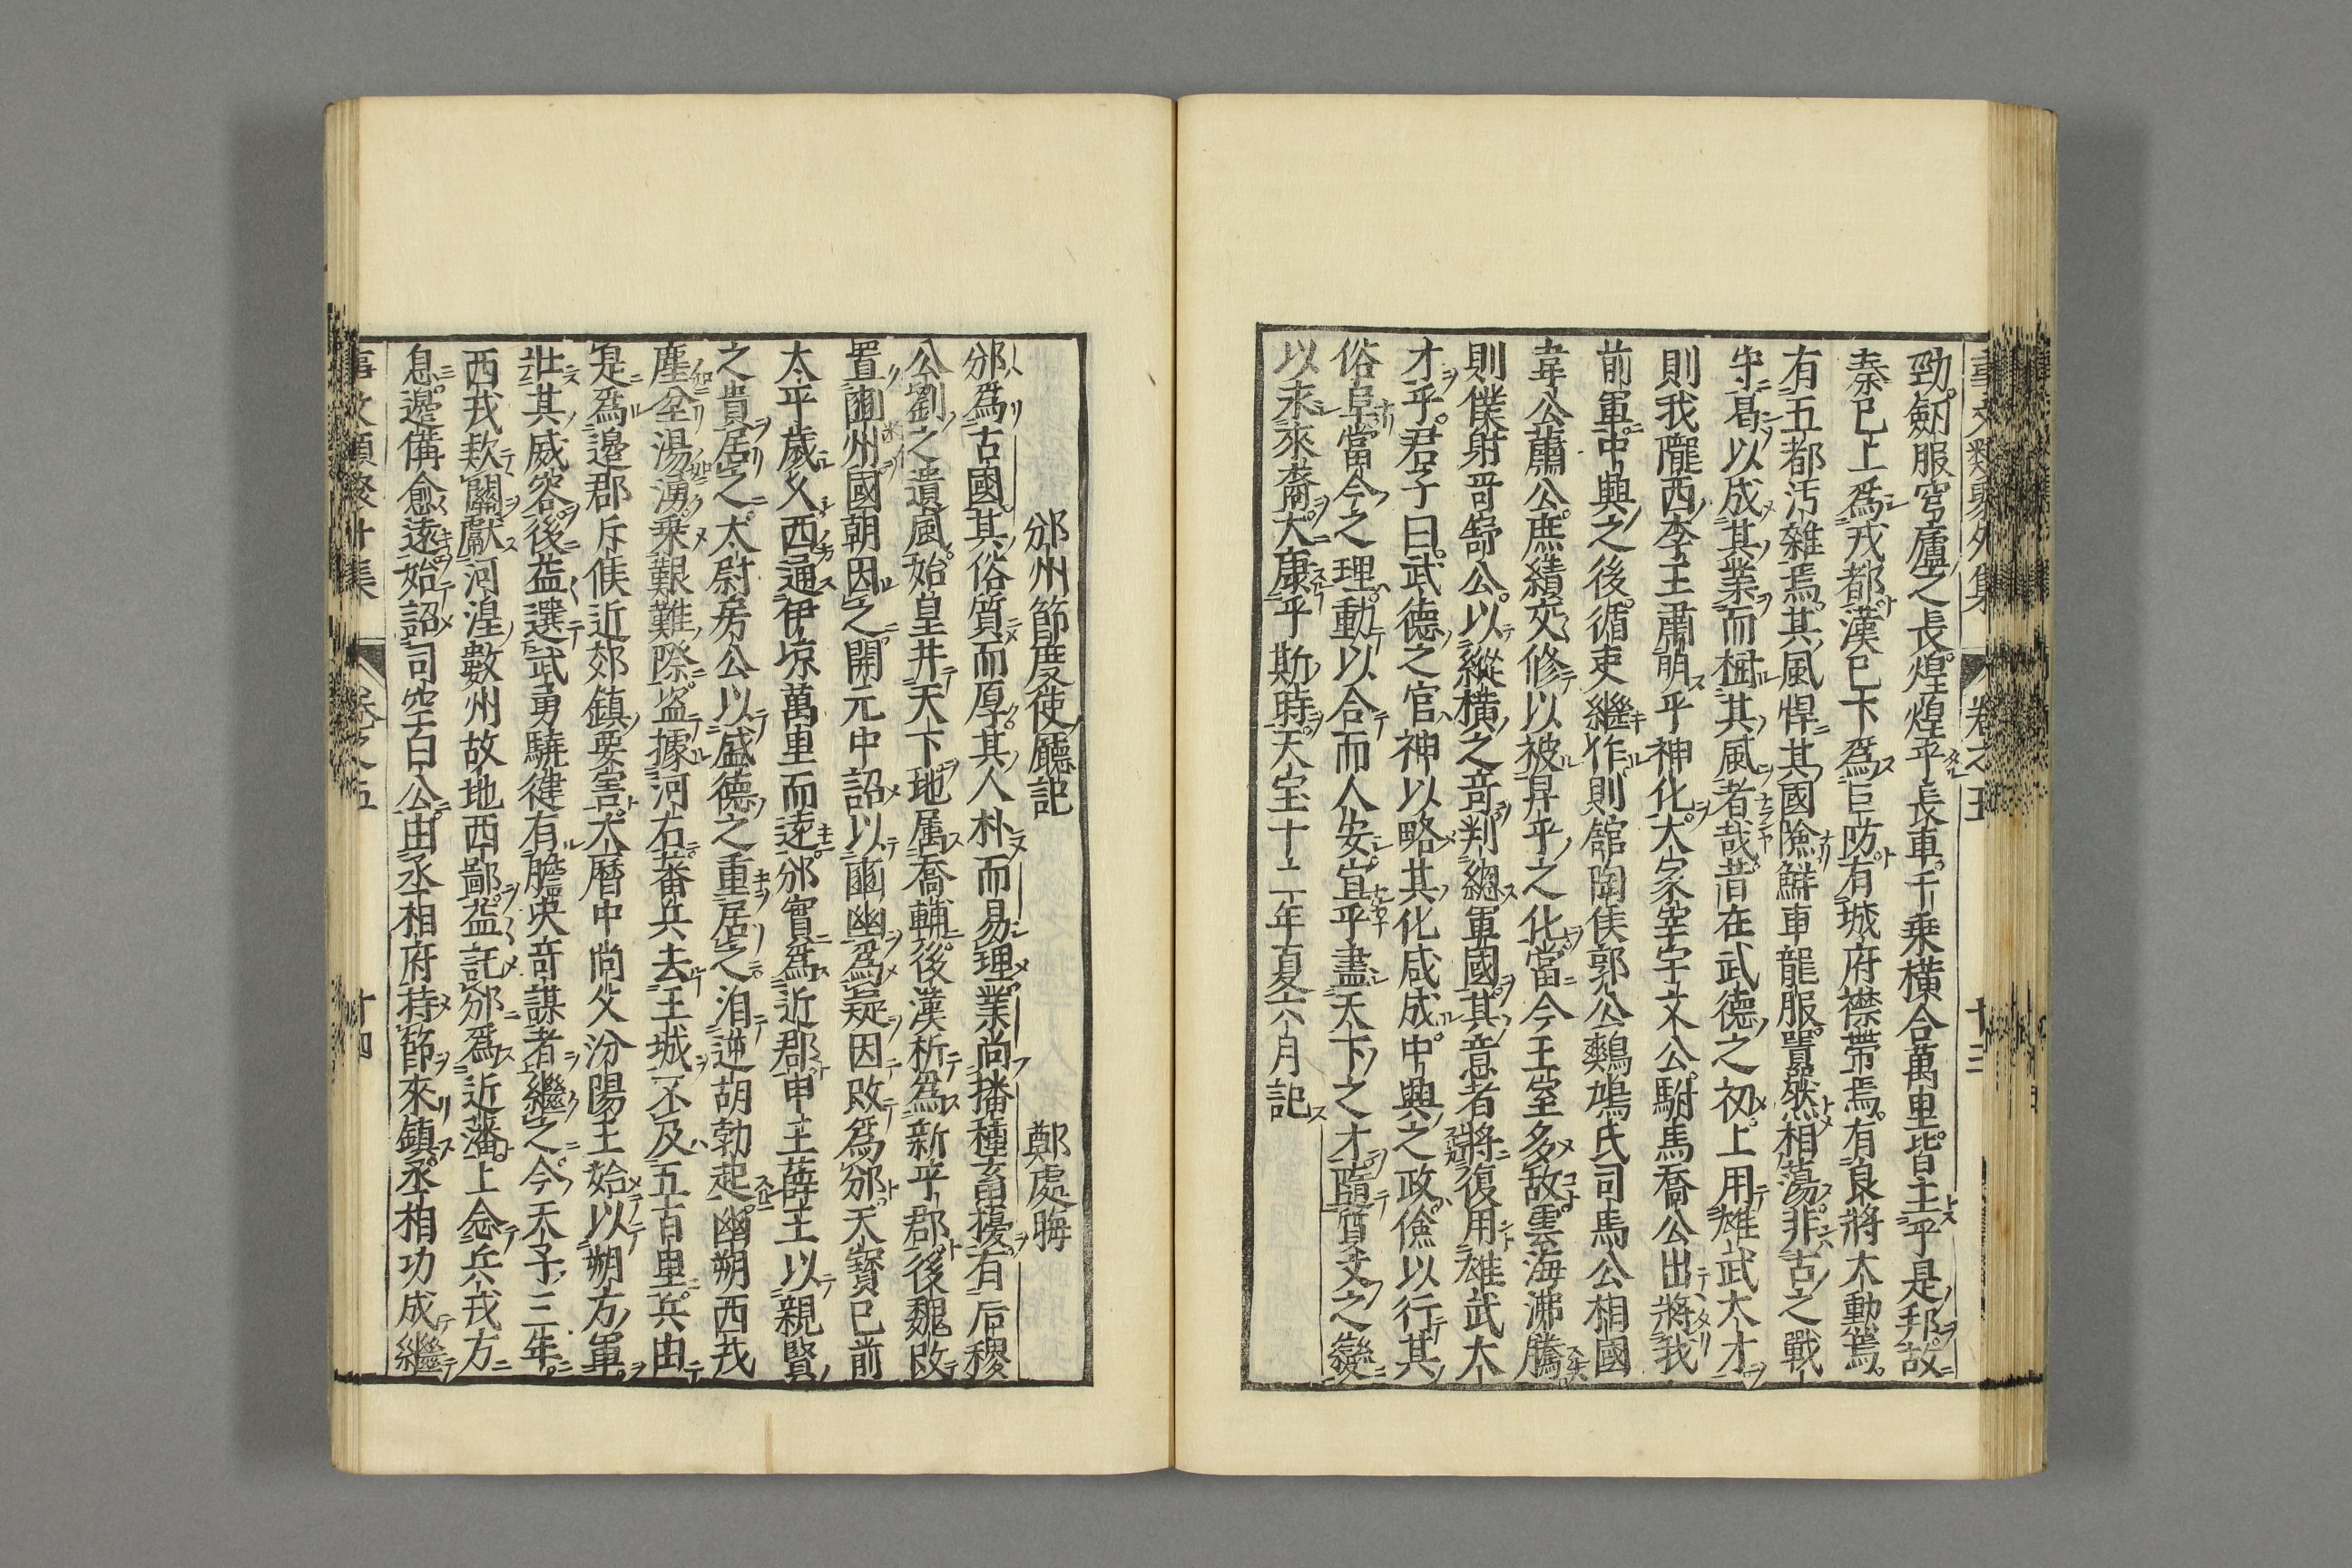 事文類聚外集 卷之五 十三
勁。劒服穹廬之長。煌煌乎長車。千乘橫合萬里。皆主乎是邦。故
秦已上爲戎都。漢已下爲巨防。有城府襟帶焉。有良將大勳焉。
有五都汚雜焉。其風悍。其國險。鮮車龍服。詈然相蕩。非古之戰
牢曷以成其業。而樹其風者哉。昔在武德之初。上用雄武大才
則我隴西李王肅萌乎神化。大家宰宇文公。駙馬喬公出將我
前軍。中興之後。循吏繼作。則舘陶侯郭公。鷞鳩氏司馬公。相國
韋公蕭公。庶績交修。以被昇乎之化。當今王室多敌。雲海沸騰
則僕射哥舒公。以縱橫之竒。判緫軍國。其意者將復用雄武大
才乎。君子曰。武德之官。神以略其化咸成。中興之政。儉以行其
俗阜。當今之理。動以合而人安。宜乎盡天下之才。隨質文之變
以求來裔大康乎斯時。天宝十二年夏六月記
邠州節度使廳記 鄭處晦
邠爲古國。其俗質而厚。其人朴而易理。業尚播種畜擾。有后稷
公劉之遺風。始皇幷天下。地属喬輔。後漢析爲新乎郡。後魏改
置豳州。國朝因之。開元中詔以豳幽爲疑。因改爲邠。天寳已前
太平歲久。西通伊凉萬里而遠。邠實爲近郡。申王薛王以親賢
之貴居之。太尉房公以盛德之重居之。洎逆胡勃起幽朔。西戎
塵坌湯湧。乘艱難際。盗據河右。蕃兵去王城不及五百里。兵由
是爲邊郡。斥候近郊。鎮要害。大曆中尚父汾陽王始以朔方軍
壯其威容。後益選武勇驍徤有膽决竒謀者繼之。今天子三年。
西戎欵關。獻河湟數州故地。西鄙益託邠爲近藩。上念兵戎方
息。邊備愈遠。始詔司空白公。由丞相府持節來鎮。丞相功成繼
事文類聚外集 卷之五 十四